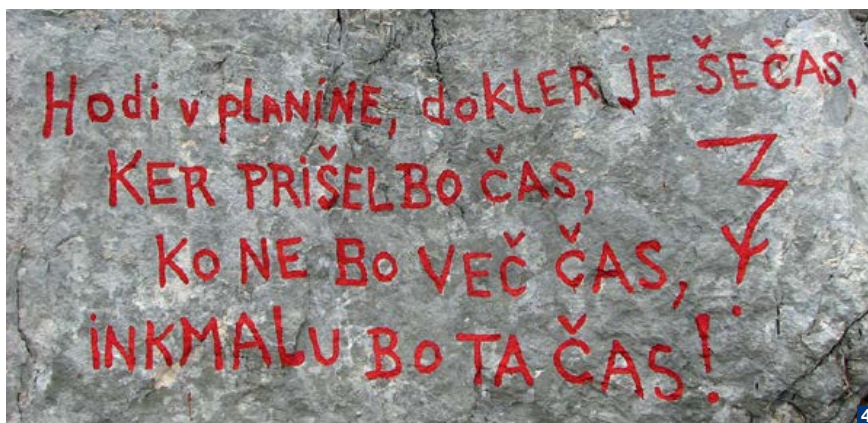 Hodi v plANiNE, doKLER jE ŠE ČAS,
KER PRIŠEL BO ČAS,
KO NE BO VEČ ČAS,
iN KMALU BO TA ČAS!
4